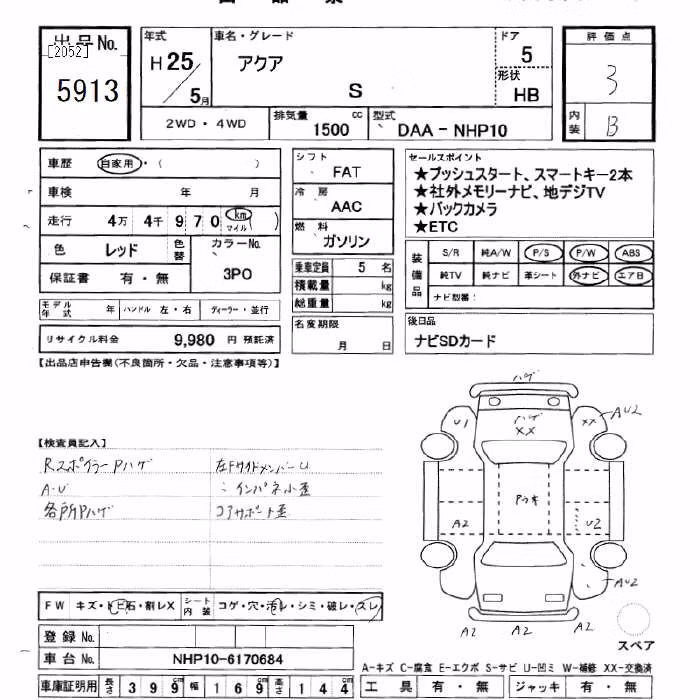 出品No.
[2052]
5913
年式
H25/5月
車名・グレード
アクア
S
ドア
5
形状
HB
評価点
3
内装
B
2WD・4WD
排気量
1500 cc
型式
DAA-NHP10
車歴
自家用・( )
車検 年 月
走行 4万 4千 9 7 0 km ( )
マイル
色 レッド
色替
カラーNo.
3P0
保証書 有・無
モデル年式 年
ハンドル 左・右
ディーラー・並行
リサイクル料金 9,980 円 預託済
シフト
FAT
冷房
AAC
燃料
ガソリン
乗車定員 5 名
積載量 kg
総重量 kg
名変期限
月 日
セールスポイント
★プッシュスタート、スマートキー2本
★社外メモリーナビ、地デジTV
★バックカメラ
★ETC
装備品
S/R 純A/W P/S P/W ABS
純TV 純ナビ 革シート 外ナビ エアB
ナビ型番:
後日品
ナビSDカード
【出品店申告欄(不良箇所・欠品・注意事項等)】
【検査員記入】
Rスポイラー Pハゲ
A・U
各所Pハゲ
左Fサイドメンバー U
〃 インパネ小歪
コアサポート歪
ハゲ
ハゲ
XX
U1
XX
AU2
Pウキ
A2
U2
AU2
A2
A2
A2
スペア
FW キズ・トビ石・割レX
シート内装 コゲ・穴・汚レ・シミ・破レ・スレ
登録 No.
車台 No. NHP10-6170684
A-キズ C-腐食 E-エクボ S-サビ U-凹ミ W-補修 XX-交換済
車庫証明用 長さ 399cm 幅 169cm 高さ 144cm
工具 有・無
ジャッキ 有・無